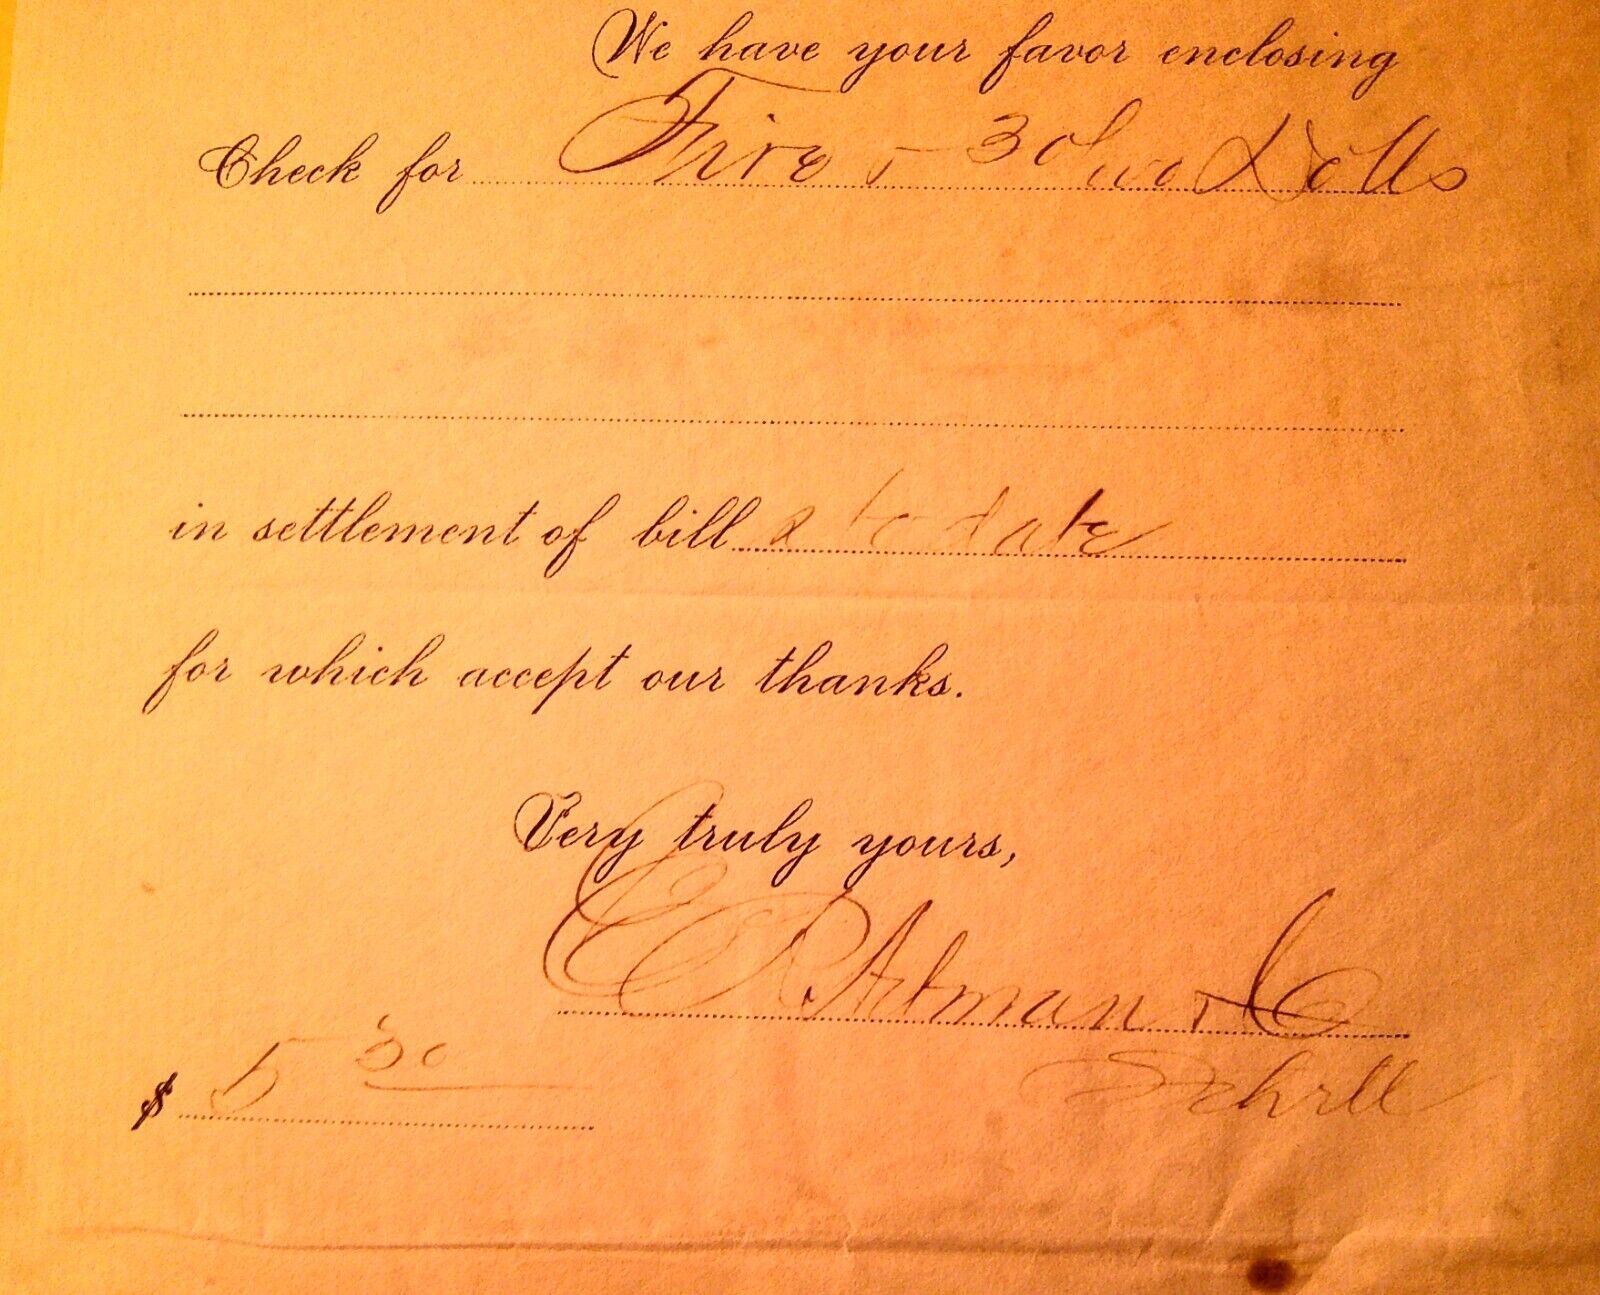 We have your favor enclosing
Check for Five & 30/100 Dolls
in settlement of bill to date
for which accept our thanks.
Very truly yours,
Artman & Co
$ 5 30